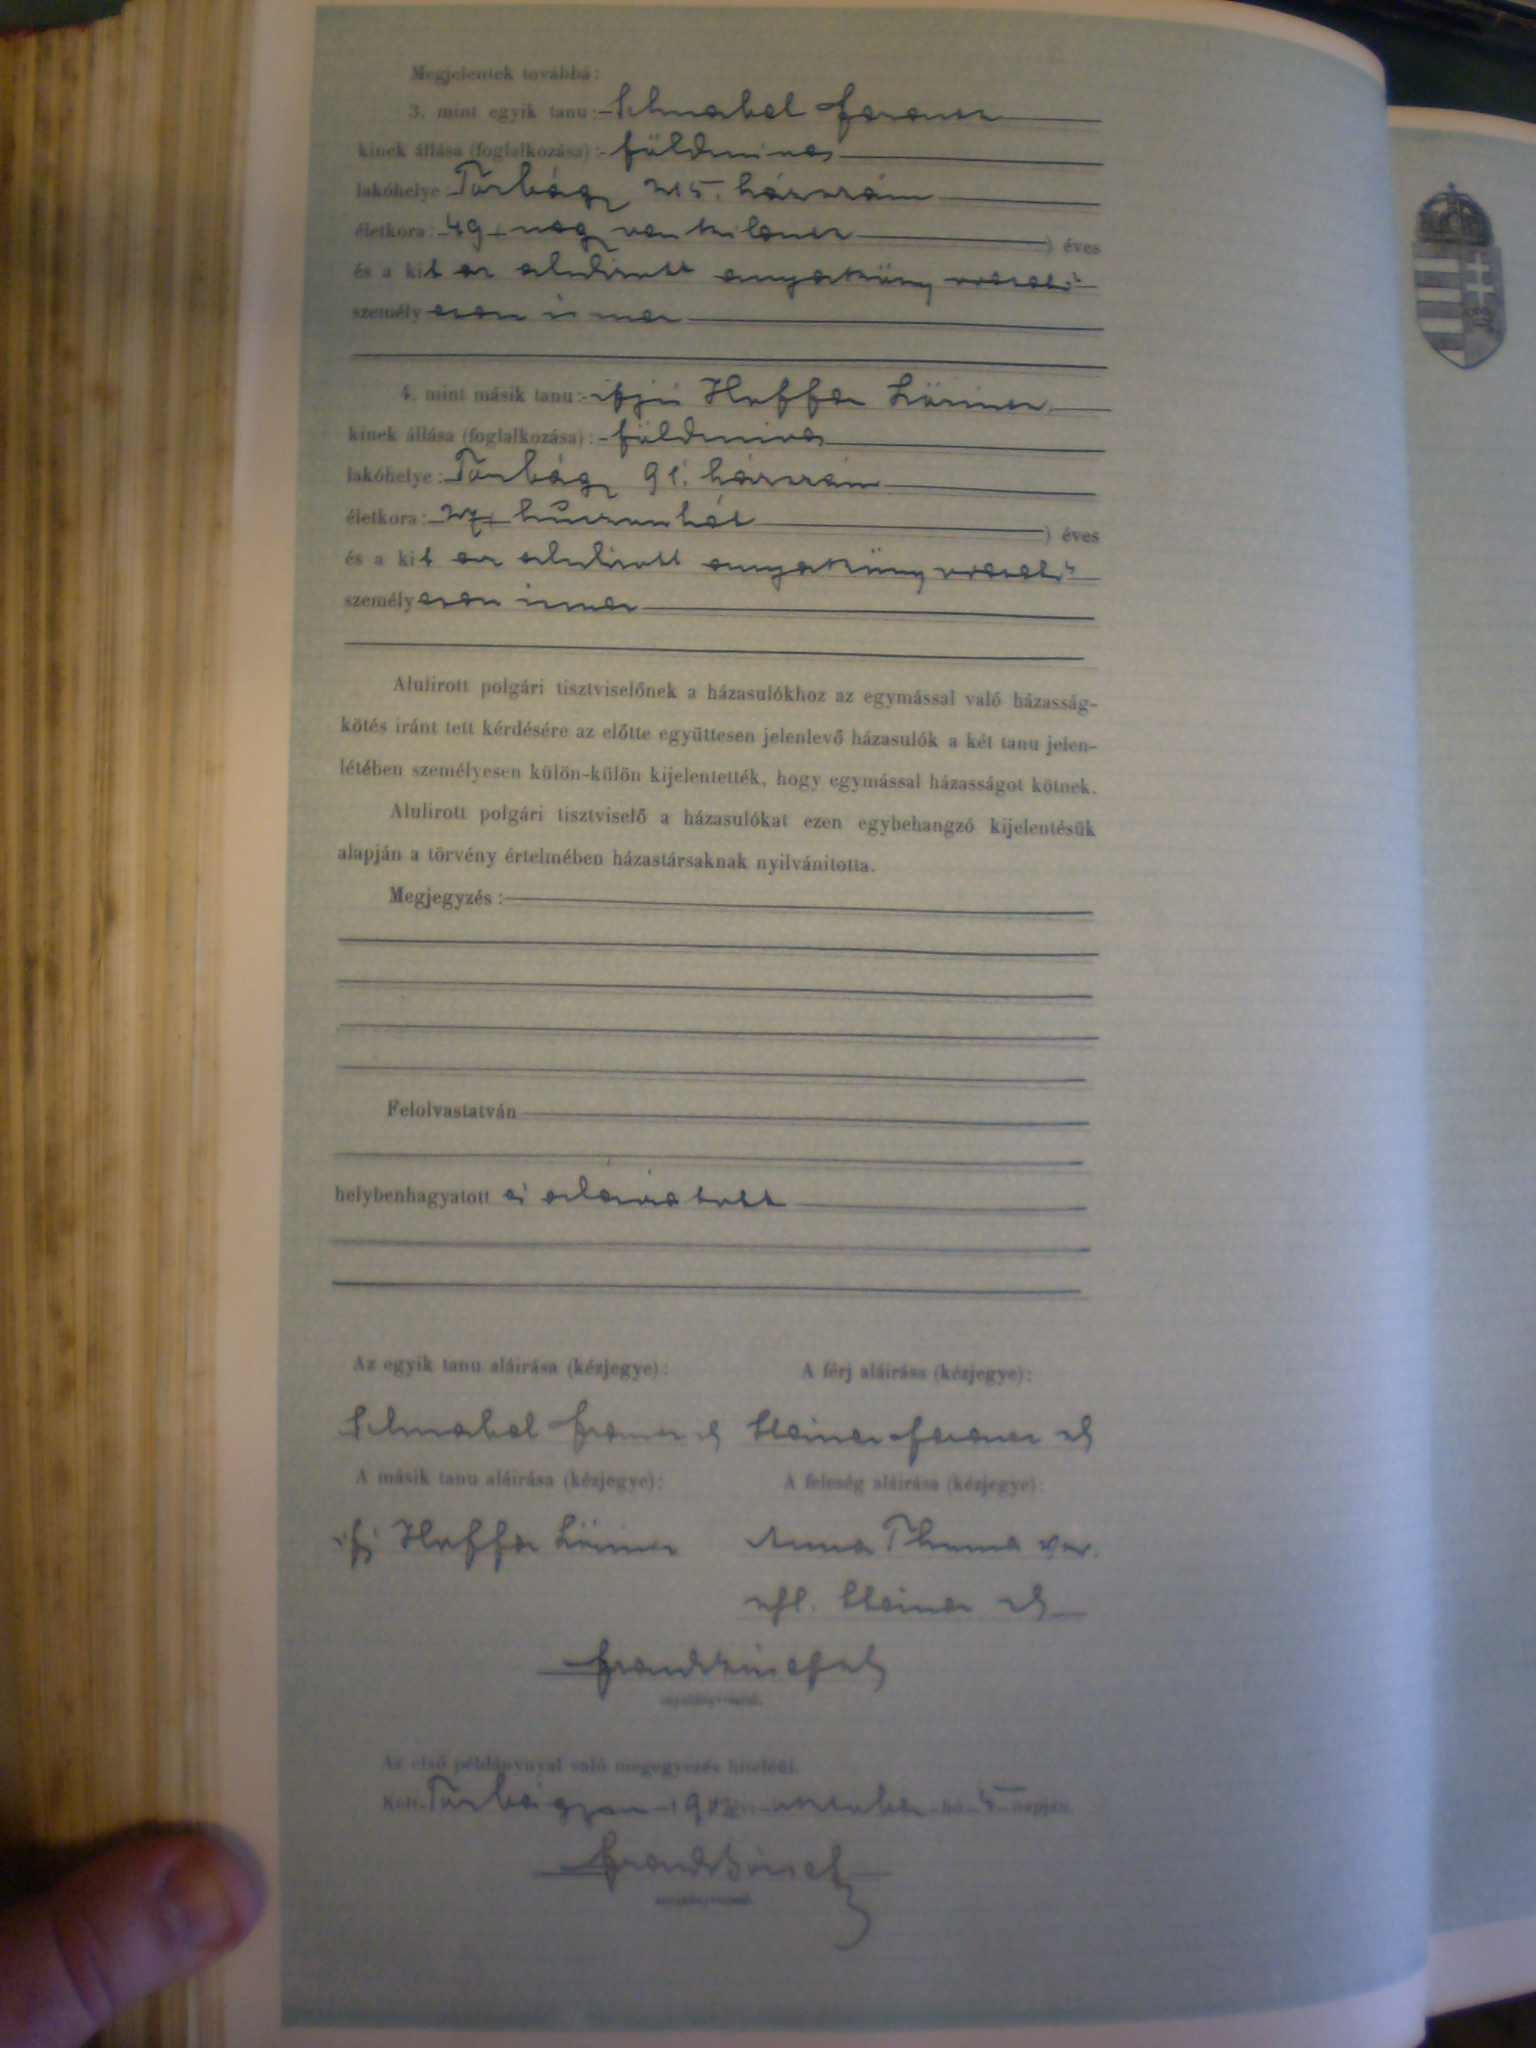 Megjelentek továbbá:
3. mint egyik tanu: Schnabel Ferencz
kinek állása (foglalkozása): földmives
lakóhelye: Torbágy 215. házszám
életkora: 49 negyvenkilencz ) éves
és a kit az alulirott anyakönyvvezető
személyesen ismer
4. mint másik tanu: ifju Hoffer Lőrincz
kinek állása (foglalkozása): földmives
lakóhelye: Torbágy 91. házszám
életkora: 27 huszonhét ) éves
és a kit az alulirott anyakönyvvezető
személyesen ismer
Alulirott polgári tisztviselőnek a házasulókhoz az egymással való házasság-
kötés iránt tett kérdésére az előtte együttesen jelenlevő házasulók a két tanu jelen-
létében személyesen külön-külön kijelentették, hogy egymással házasságot kötnek.
Alulirott polgári tisztviselő a házasulókat ezen egybehangzó kijelentésük
alapján a törvény értelmében házastársaknak nyilvánitotta.
Megjegyzés:
Felolvastatván
helybenhagyatott és aláiratott
Az egyik tanu aláirása (kézjegye):
A férj aláirása (kézjegye):
Schnabel Ferencz sk
Steiner Ferencz sk
A másik tanu aláirása (kézjegye):
A feleség aláirása (kézjegye):
ifj Hoffer Lőrincz
Anna Thoma
Steiner sk
anyakönyvvezető.
Az első példánynyal való megegyezés hiteléül.
Kelt Torbágyon 190 hó 5 napján.
anyakönyvvezető.